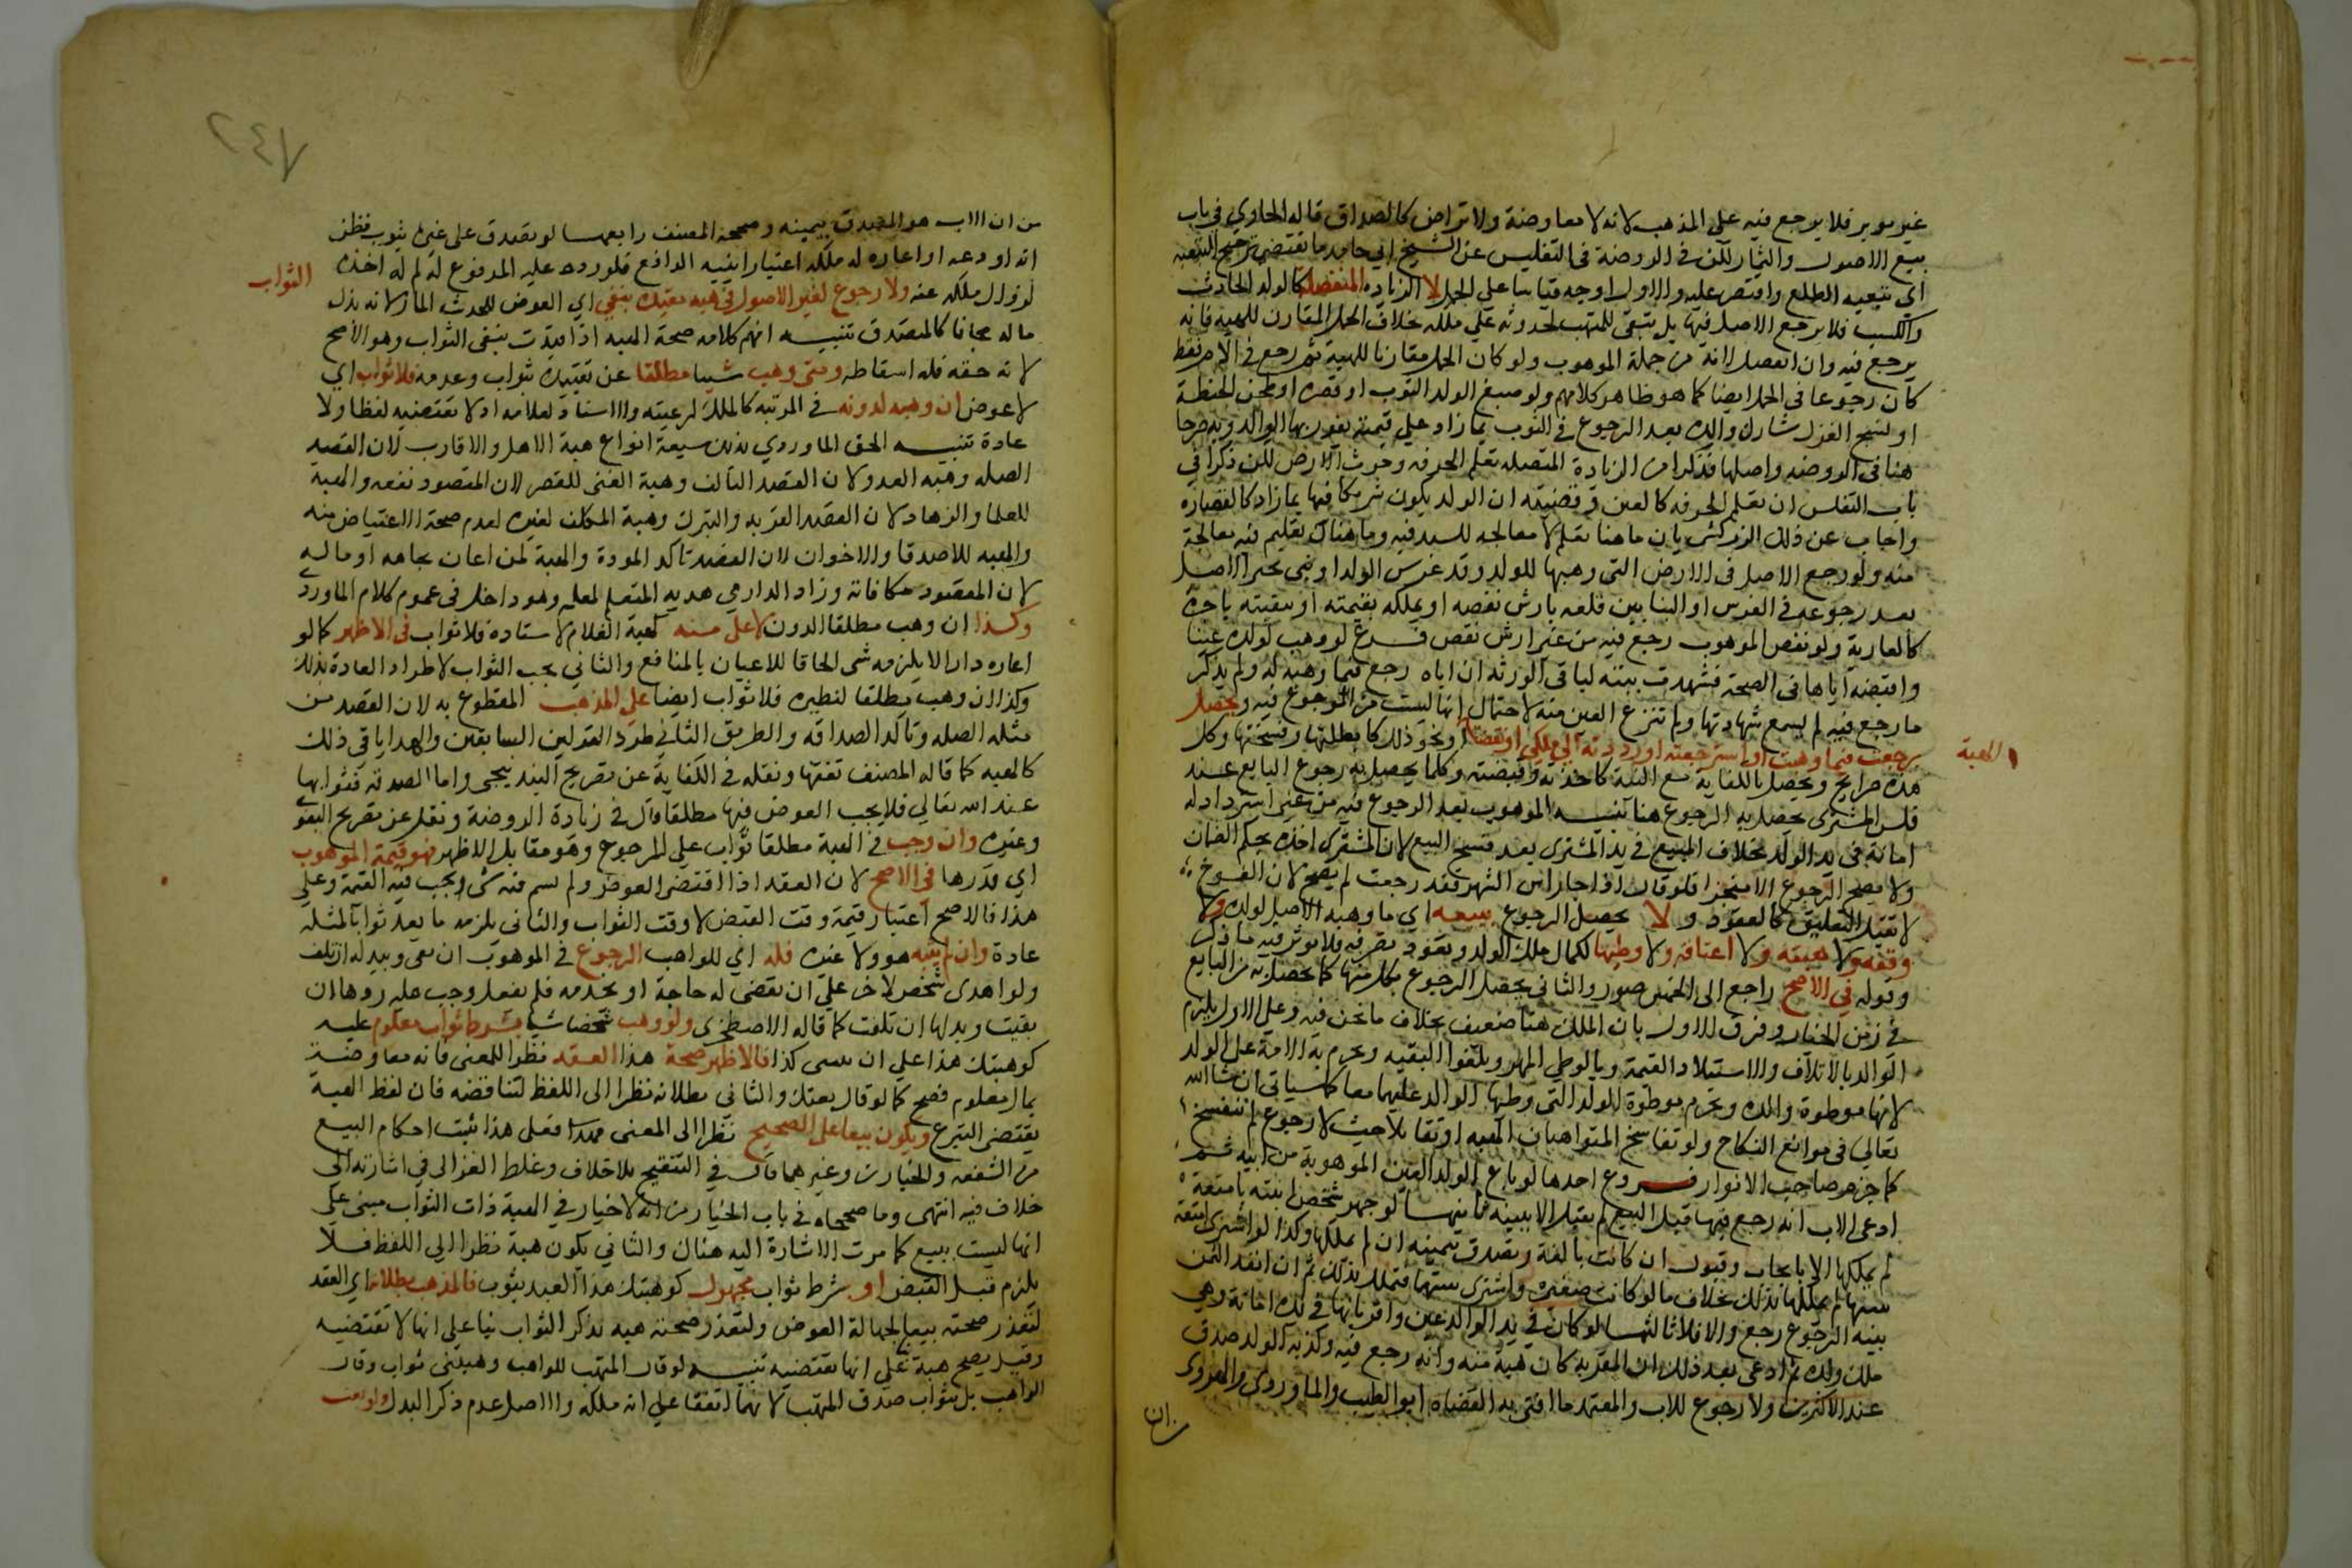 غير موبر فلا يرجع فيه على المذهب لانه لا معاوضة ولا تراض كالصداق قاله الحاوي في باب
بيع الاصول والثمار لكن في الروضة في التفليس عن الشيخ ابي حامد ما يقتضي ترجيح التبعية
اي تبعية الطلع واقتصر عليه والاول اوجه قياسا على الحمل لا الزيادة المنفصلة كالولد الحادث
والكسب فلا يرجع الاصل فيها بل تبقى للمتهب لحدوثه على ملكه بخلاف الحمل المقارن للهبة فانه
يرجع فيه وان انفصل لانه من جملة الموهوب ولو كان الحمل مقارنا للهبة ثم رجع في الام فقط
كان رجوعا في الحمل ايضا كما هو ظاهر كلامهم ولو صبغ الولد الثوب او قصره او طحن الحنطة
او نسج الغزل شارك والده بعد الرجوع في الثوب بما زاد على قيمته يفوز بها الوالد وبه صرحا
هنا في الروضه واصلها فذكرا من الزيادة المتصله تعلم الحرفه وحرث الارض لكن ذكرا في
باب التفلس ان تعلم الحرفه كالعين وقضيته ان الولد يكون شريكا فيها بما زاد كالقصاره
واجاب عن ذلك الزركشي بان ما هنا تعلم لا معالجه للسيد فيه وما هناك تعليم فيه معالجة
منه ولو رجع الاصل في الارض التي وهبها للولد وقد غرس الولد او بنى تخير الاصل
بعد رجوعه في الغرس او البنا بين قلعه بارش نقصه او تملكه بقيمته او تبقيته باجره
كالعارية ولو نقص الموهوب رجع فيه من غير ارش نقص فرع لو وهب لولده عينا
واقبضه اياها في الصحة فشهدت بينة لباقي الورثه ان اباه رجع فيما وهبه له ولم يذكر
ما رجع فيه لم تسمع شهادتها ولم تنزع العين منه لاحتمال انها ليست من الموجوع فيه ويحصل
برجعت فيما وهبت او استرجعته او رددته الى ملكي او نقضتها ونحو ذلك كابطلتها وفسختها وكل
الهبة
هذه صرايح ويحصل بالكناية مع النية كاخذته وقبضته وكلما يحصل به رجوع البايع عند
فلس المشتري يحصل به الرجوع هنا تنبيه الموهوب بعد الرجوع فيه من غير استرداد له
امانة في يد الولد بخلاف المبيع في يد المشتري بعد فسخ البيع لان المشتري اخذه بحكم الضمان
ولا يصح الرجوع الا منجزا فلو قال اذا جا راس الشهر فقد رجعت لم يصح لان الفسوخ
لا تقبل التعليق كالعقود ولا يحصل الرجوع ببيعه اي ما وهبه الاصل لولده ولا
وقفه ولا هبته ولا اعتاقه ولا وطيها لكمال ملك الولد ونفوذ تصرفه فلا يوثر فيه ما ذكر
وقوله في الاصح راجع الى الخمس صور والثاني يحصل الرجوع بكل منها كما يحصل به من البايع
في زمن الخيار وفرق الاول بان الملك هنا ضعيف بخلاف ما نحن فيه وعلى الاول يلزم
الوالد بالاتلاف والاستيلاد القيمة وبالوطي المهر ويلغوا البقيه وتحرم به الامة على الولد
لانها موطوة والده وتحرم موطوة الولد التي وطيها الوالد عليهما معا كما سياتي ان شا الله
تعالى في موانع النكاح ولو تفاسخ المتواهبان الهبه او تقايلا حيث لا رجوع لم تنفسخ
كما جزم به صاحب الانوار فروع احدها لو باع الولد العين الموهوبة من ابيه ثم
ادعى الاب انه رجع فيها قبل البيع لم يقبل الا ببينه ثانيها لو جهز شخص ابنته بامتعة
لم يملكها الا بايجاب وقبول ان كانت بالغة ويصدق بيمينه ان لم يملكها وكذا لو اشترى امتعة
سماها لم يملكها بذلك بخلاف ما لو كانت صغيرة واشترى سماها فتملك بذلك ثم ان انقد الثمن
بنية الرجوع رجع والا فلا ثالثها لو كان في يد الوالد عين واقر بانها في يده امانة وهي
ملك ولده ثم ادعى بعد ذلك ان المقر به كان هبة منه وانه رجع فيه وكذبه الولد صدق
عند الاكثرين ولا رجوع للاب والمعتمد ما افتى به القضاه ابو الطيب والماوردي والهروي
من ان
٢٤٧
من ان الاب هو المصدق بيمينه وصححه المصنف رابعها لو تصدق على غيره بثوب فظن
انه اودعه او اعاره له ملكه اعتبارا بنية الدافع فلو رده عليه المدفوع له لم له اخذه
الثواب
لزوال ملكه عنه ولا رجوع لغير الاصول في هبه مقيدة بنفي اي العوض للحدث المار ولانه بذل
ماله مجانا كالمتصدق تنبيه افهم كلامه صحة الهبه اذا قيدت بنفي الثواب وهو الاصح
لانه حقه فله اسقاطه ومتى وهب شيا مطلقا عن تقييده بثواب وعدمه فلا ثواب اي
لا عوض ان وهب لدونه في المرتبه كالملك لرعيته والاستاذ لغلامه اذ لا تقتضيه لفظا ولا
عادة تنبيه الحق الماوردي بذلك سبعة انواع هبة الاهل والاقارب لان القصد
الصله وهبه العدو لان القصد التالف وهبة الغني للفقير لان المقصود نفعه والهبة
للعلما والزهاد لان القصد القربه والتبرك وهبة المكلف لغيره لعدم صحة الاعتياض منه
والهبه للاصدقا والاخوان لان القصد تاكد المودة والهبة لمن اعان بجاهه او ماله
لان المقصود مكافاته وزاد الدارمي هديه المتعلم لمعلمه وهو داخل في عموم كلام الماوردي
وكذا ان وهب مطلقا الدون لاعلى منه كهبة الغلام لاستاذه فلا ثواب في الاظهر كما لو
اعاره دارا لا يلزمه شي الحاقا للاعيان بالمنافع والثاني يجب الثواب لاطراد العادة بذلك
وكذا ان وهب مطلقا لنظيره فلا ثواب ايضا على المذهب المقطوع به لان القصد من
مثله الصله وتاكد الصداقه والطريق الثاني طرد القولين السابقين والهدايا في ذلك
كالهبه كما قاله المصنف تفقها ونقله في الكفاية عن تصريح البندنيجي واما الصدقه فثوابها
عند الله تعالى فلا يجب العوض فيها مطلقا قال في زيادة الروضة ونقل عن تصريح البغوي
وغيره وان وجب في الهبة مطلقا ثواب على المرجوع وهو مقابل الاظهر فهو قيمة الموهوب
اي قدرها في الاصح لان العقد اذا اقتضى العوض ولم يسم فيه شي وجب فيه القيمة وعلى
هذا فالاصح اعتبار قيمة وقت القبض لا وقت الثواب والثاني يلزمه ما يعد ثوابا لمثله
عادة وان لم يثبه هو ولا غيره فله اي للواهب الرجوع في الموهوب ان بقي وببدله ان تلف
ولو اهدى شخص لاخر على ان يقضي له حاجة او يخدمه فلم يفعل وجب عليه ردها ان
بقيت وبدلها ان تلفت كما قاله الاصطخري ولو وهب شخصا شيا بشرط ثواب معلوم عليه
كوهبتك هذا على ان تثيبني كذا فالاظهر صحة هذا العقد نظرا للمعنى فانه معاوضة
بمال معلوم فصح كما لو قال بعتك والثاني بطلانه نظرا الى اللفظ لتناقضه فان لفظ الهبة
يقتضي التبرع ويكون بيعا على الصحيح نظرا الى المعنى فعلى هذا تثبت احكام البيع
من الشفعه والخيارين وغيرهما قال في التنقيح بلا خلاف وغلط الغزالي في اشارته الى
خلاف فيه انتهى وما صححاه في باب الخيار من انه لا خيار في الهبة ذات الثواب مبني على
انها ليست ببيع كما مرت الاشارة اليه هناك والثاني يكون هبة نظرا الى اللفظ فلا
يلزم قبل القبض او بشرط ثواب مجهول كوهبتك هذا العبد بثوب فالمذهب بطلانه اي العقد
لتعذر صحته بيعا لجهالة العوض ولتعذر صحته هبه بذكر الثواب بنا على انها لا تقتضيه
وقيل يصح هبة على انها تقتضيه تنبيه لو قال المتهب للواهب وهبتني بلا ثواب وقال
الواهب بل بثواب صدق المتهب لانهما اتفقا على انه ملكه والاصل عدم ذكر البدل